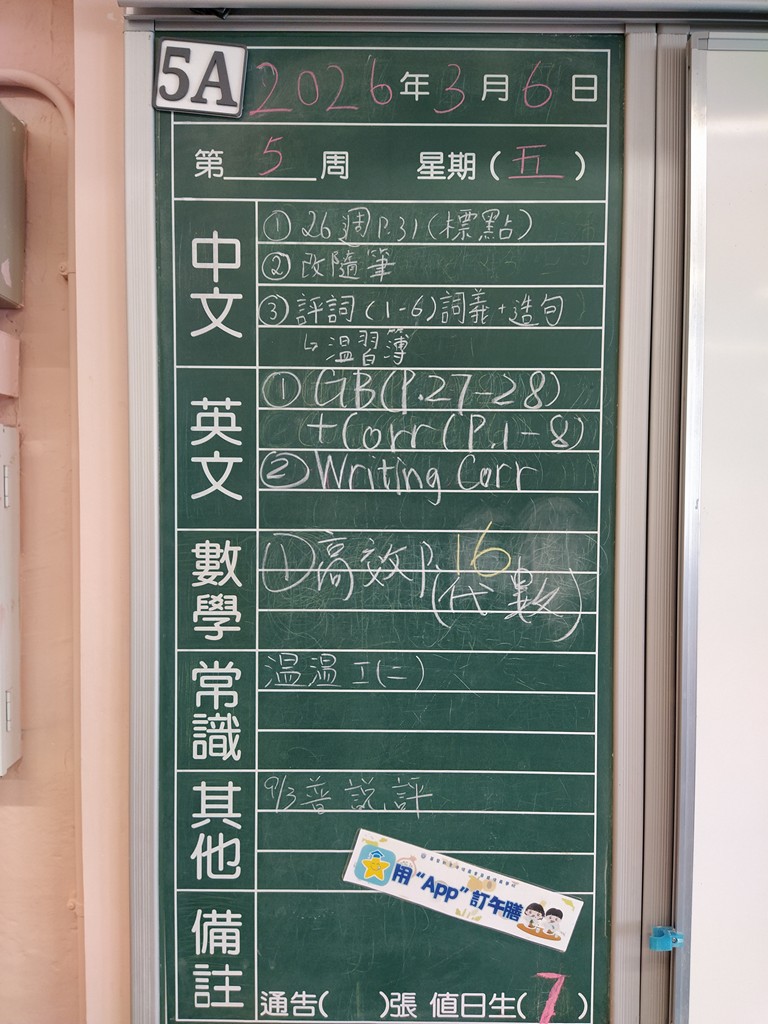 5A 2026年3月6日
第 5 周 星期(五)
中文
①26週P.31(標點)
②改隨筆
③評詞(1-6)詞義+造句
↳溫習簿
英文
①GB(P.27-28)
+Corr(P.1-8)
②Writing Corr
數學
①高效P.16
(代數)
常識
溫溫 I(二)
其他
9/3普說評
用“App”訂午膳
備註
通告( )張 值日生(7)